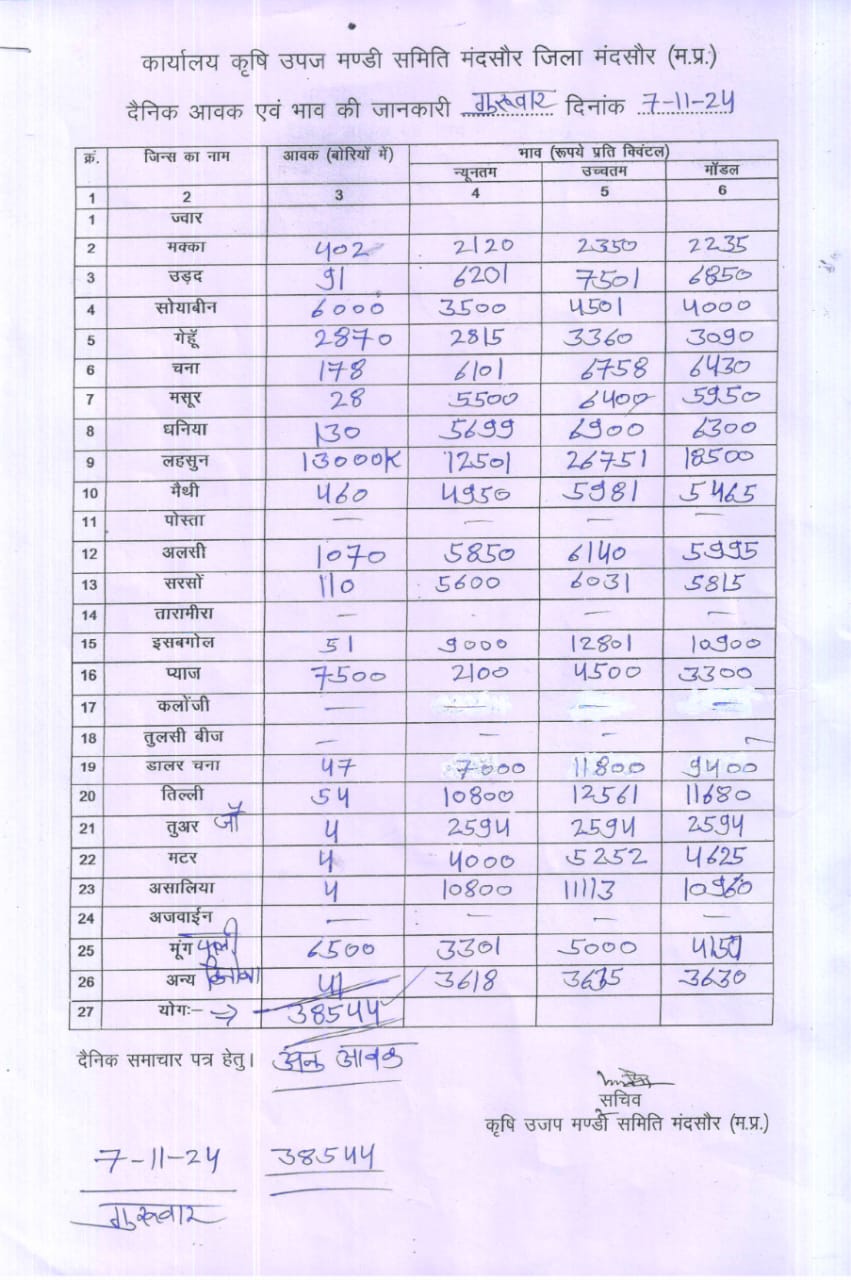 कार्यालय कृषि उपज मण्डी समिति मंदसौर जिला मंदसौर (म.प्र.)
दैनिक आवक एवं भाव की जानकारी गुरूवार दिनांक 7-11-24
क्रं. जिन्स का नाम आवक (बोरियों में) भाव (रूपये प्रति क्विंटल)
न्यूनतम उच्चतम मॉडल
1 2 3 4 5 6
1 ज्वार
2 मक्का 402 2120 2350 2235
3 उड़द 91 6201 7501 6850
4 सोयाबीन 6000 3500 4501 4000
5 गेहूॅ 2870 2815 3360 3090
6 चना 178 6101 6758 6430
7 मसूर 28 5500 6400 5950
8 धनिया 130 5699 6900 6300
9 लहसुन 13000K 12501 26751 18500
10 मैथी 460 4950 5981 5465
11 पोस्ता — — — —
12 अलसी 1070 5850 6140 5995
13 सरसों 110 5600 6031 5815
14 तारामीरा — — — —
15 इसबगोल 51 9000 12801 10900
16 प्याज 7500 2100 4500 3300
17 कलोंजी — — — —
18 तुलसी बीज — — — —
19 डालर चना 47 7000 11800 9400
20 तिल्ली 54 10800 12561 11680
21 तुअर जौ 4 2594 2594 2594
22 मटर 4 4000 5252 4625
23 असालिया 4 10800 11113 10960
24 अजवाईन — — — —
25 मूंग फली 6500 3301 5000 4150
26 अन्य 41 3618 3635 3630
27 योगः- → 38544
दैनिक समाचार पत्र हेतु। आवक
सचिव
कृषि उजप मण्डी समिति मंदसौर (म.प्र.)
7-11-24 38544
गुरूवार